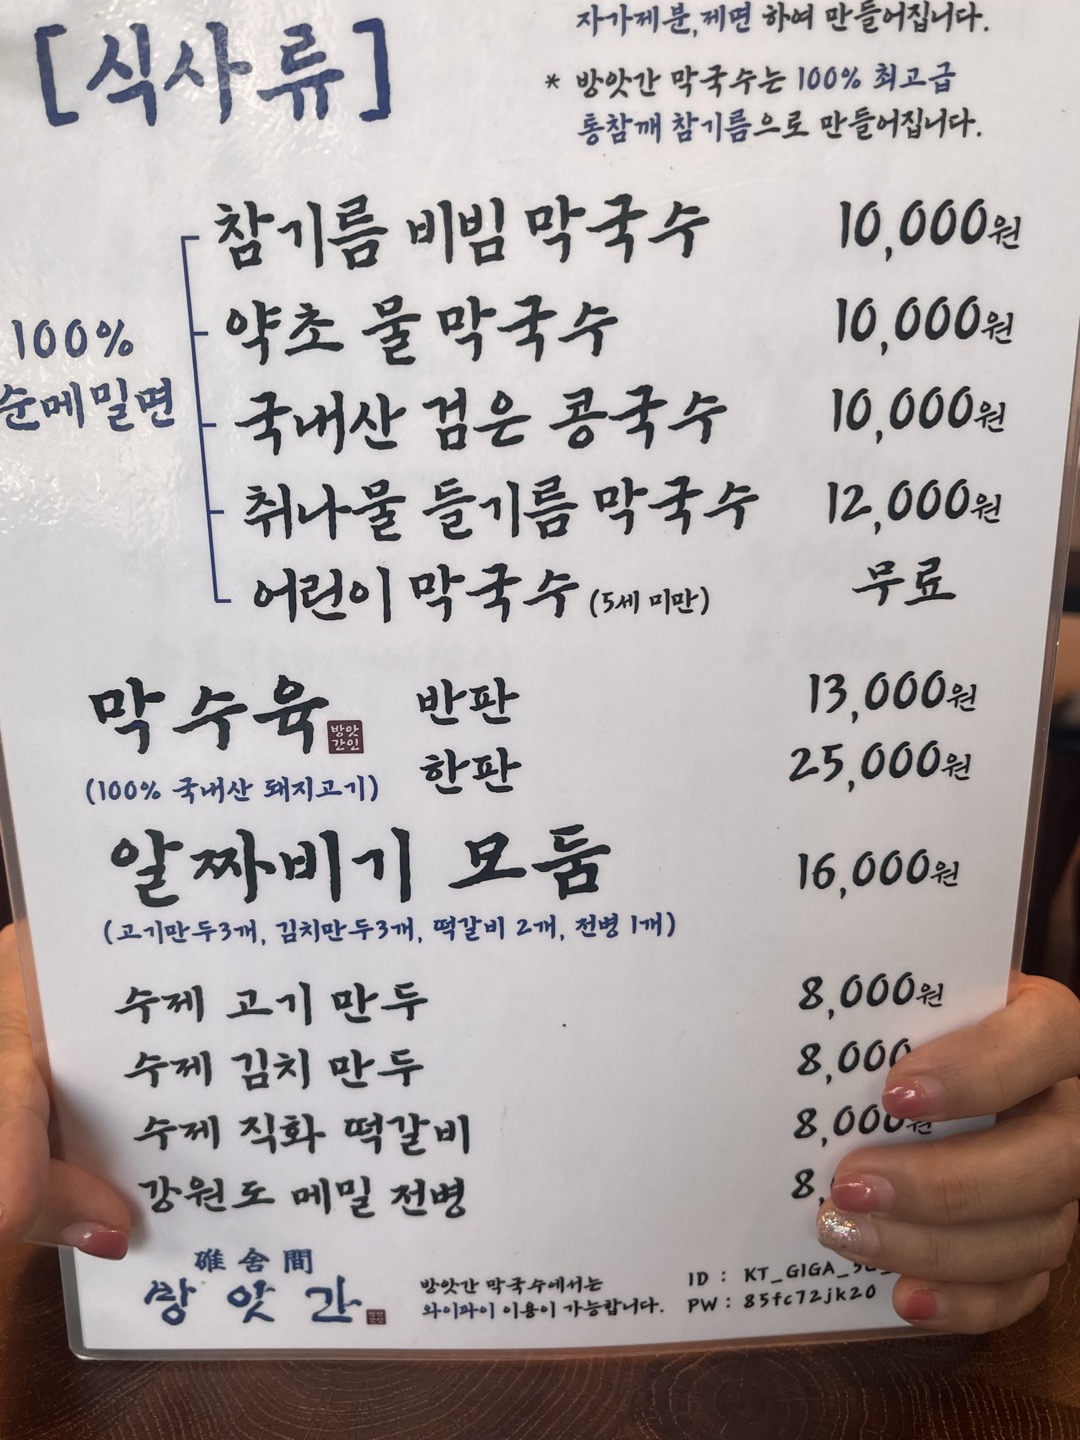 [식사류]
자가제분,제면 하여 만들어집니다.
* 방앗간 막국수는 100% 최고급
통참깨 참기름으로 만들어집니다.
100%
순메밀면
참기름 비빔 막국수 10,000원
약초 물 막국수 10,000원
국내산 검은 콩국수 10,000원
취나물 들기름 막국수 12,000원
어린이 막국수 (5세 미만) 무료
막수육 방앗간인 반판 13,000원
한판 25,000원
(100% 국내산 돼지고기)
알짜비기 모둠 16,000원
(고기만두3개, 김치만두3개, 떡갈비 2개, 전병 1개)
수제 고기 만두 8,000원
수제 김치 만두 8,000
수제 직화 떡갈비 8,000원
강원도 메밀 전병 8,
碓舍間
방앗간
방앗간 막국수에서는
와이파이 이용이 가능합니다.
ID : KT_GIGA_5G_
PW : 85fc72jk20